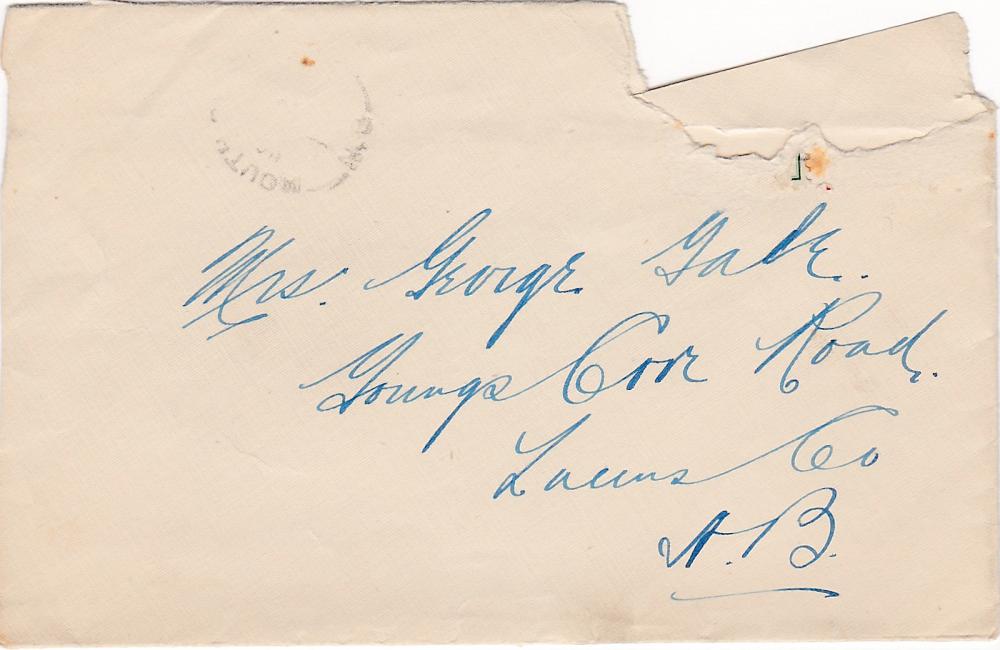 Mrs. George Gale.
Youngs Cove Road.
Queens Co
N.B.